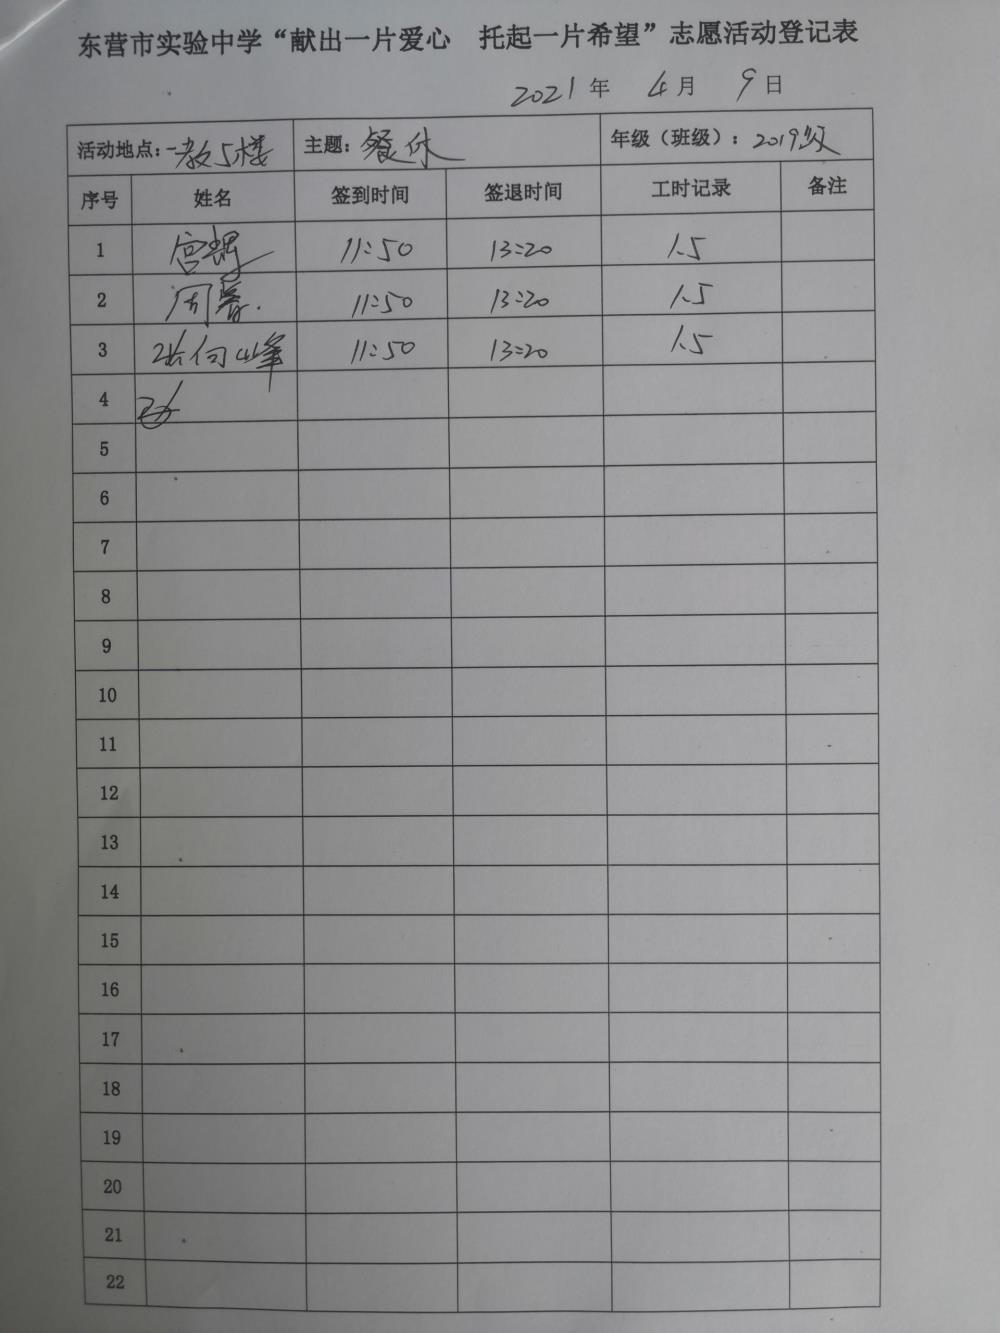 东营市实验中学“献出一片爱心 托起一片希望”志愿活动登记表
2021 年 4 月 9 日
活动地点:一教5楼 主题:餐休 年级（班级）：2019级
序号 姓名 签到时间 签退时间 工时记录 备注
1 宫 11:50 13:20 1.5
2 周 11:50 13:20 1.5
3 张向峰 11:50 13:20 1.5
4
5
6
7
8
9
10
11
12
13
14
15
16
17
18
19
20
21
22